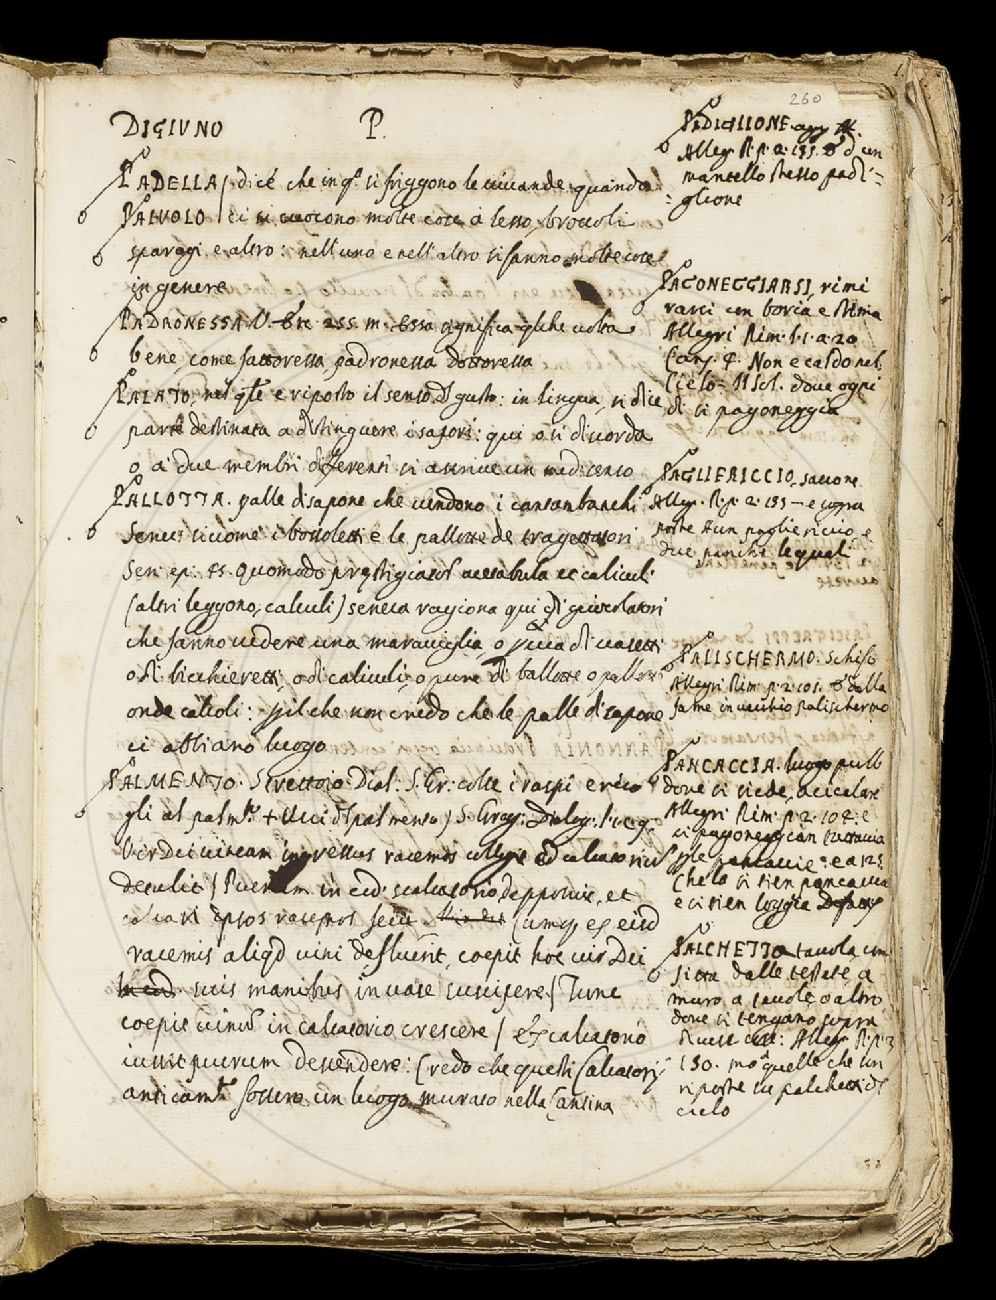 260
DIGIUNO P.
PADELLA / dicé che in q.ª si friggono le vivande quando
PAIUOLO / ci si cuocono molte cose à lesso, broccoli
sparagi e altro: nell'uno e nell'altro si fanno molte cose
in genere
PADRONESSA V. Ete 255 m. Essa significa qlche volta
bene come fattoressa padronessa dottoressa
PALATO, nel qle e riposto il senso dl gusto: in lingua, si dice
parte destinata a distinguere i sapori: qui o si discorda
o à due membri differenti si ascrive un medesimo
PALLOTTA. palle di sapone che vendono i cantanbanchi
Senec: siccome i bossoletti e le pallotte de tragettatori
Sen: ep: 45. quomodo prestigiator acetabula et calculi
(altri leggono, calculi) seneca ragiona qui di giuocolatori
che fanno vedere una maraviglia, o sia di vasetti
o di bicchieretti, o di caliculi, o pure di ballotte o pallotte
onde calcoli: il che non credo che le palle di sapone
ci abbiano luogo
PALMENTO. Strettoio Dial: S. Gr: colte i raspi e reco
gli al palm.to + V. S. Greg: Dialog: l.
Vir Dei vineam ingressus racemos collegit ad calcatorium
detulit / Puerum in eod: calcatorio deposuit, et
calcari ipsos racemos fecit Cumq, ex eisd
racemis aliqd vini deflueret, coepit hoc vir Dei
suis manibus in vase suscipere / Tunc
coepit vinu in calcatorio crescere / & calcatorio
iussit puerum descendere: Credo che questi Calcatorij
anticam.te fossero un luogo murato nella Cantina
PADIGLIONE. app. Al.
Alleg. R. p. 2. 135. d'un
mantello stesso padi=
=glione
PAGONEGGIARSI, rimi
rarsi con boria e stima
Allegri Rim. p. 1. a 20
Canz. 4. Non e caldo nel
Cielo = Il Sol. dove ogni
dì si pagoneggia
PAGLIERICCIO, saccone
Alleg. R. p. 2. 135 = e sopra
poste a un pagliericcio e
due panche le quali
PALISCHERMO. Schifo
Allegri Rim. p. 2. 101. dalla
fame in vecchio palischermo
PANCACCIA. luogo pubb
dove si siede, a cicalare
Allegri Rim. p. 2. 102: e
si pagoneggian tuttavia
p le pancaccie: e a 125
Che la si tien pancaccia
e ci sien loggia
PALCHETTO tavola con
fitta dalle testate a
muro a tavole o altro
dove si tengano sopra
Allegr. R. p. 2
130. quelle che son
riposte in palchetti dl
cielo